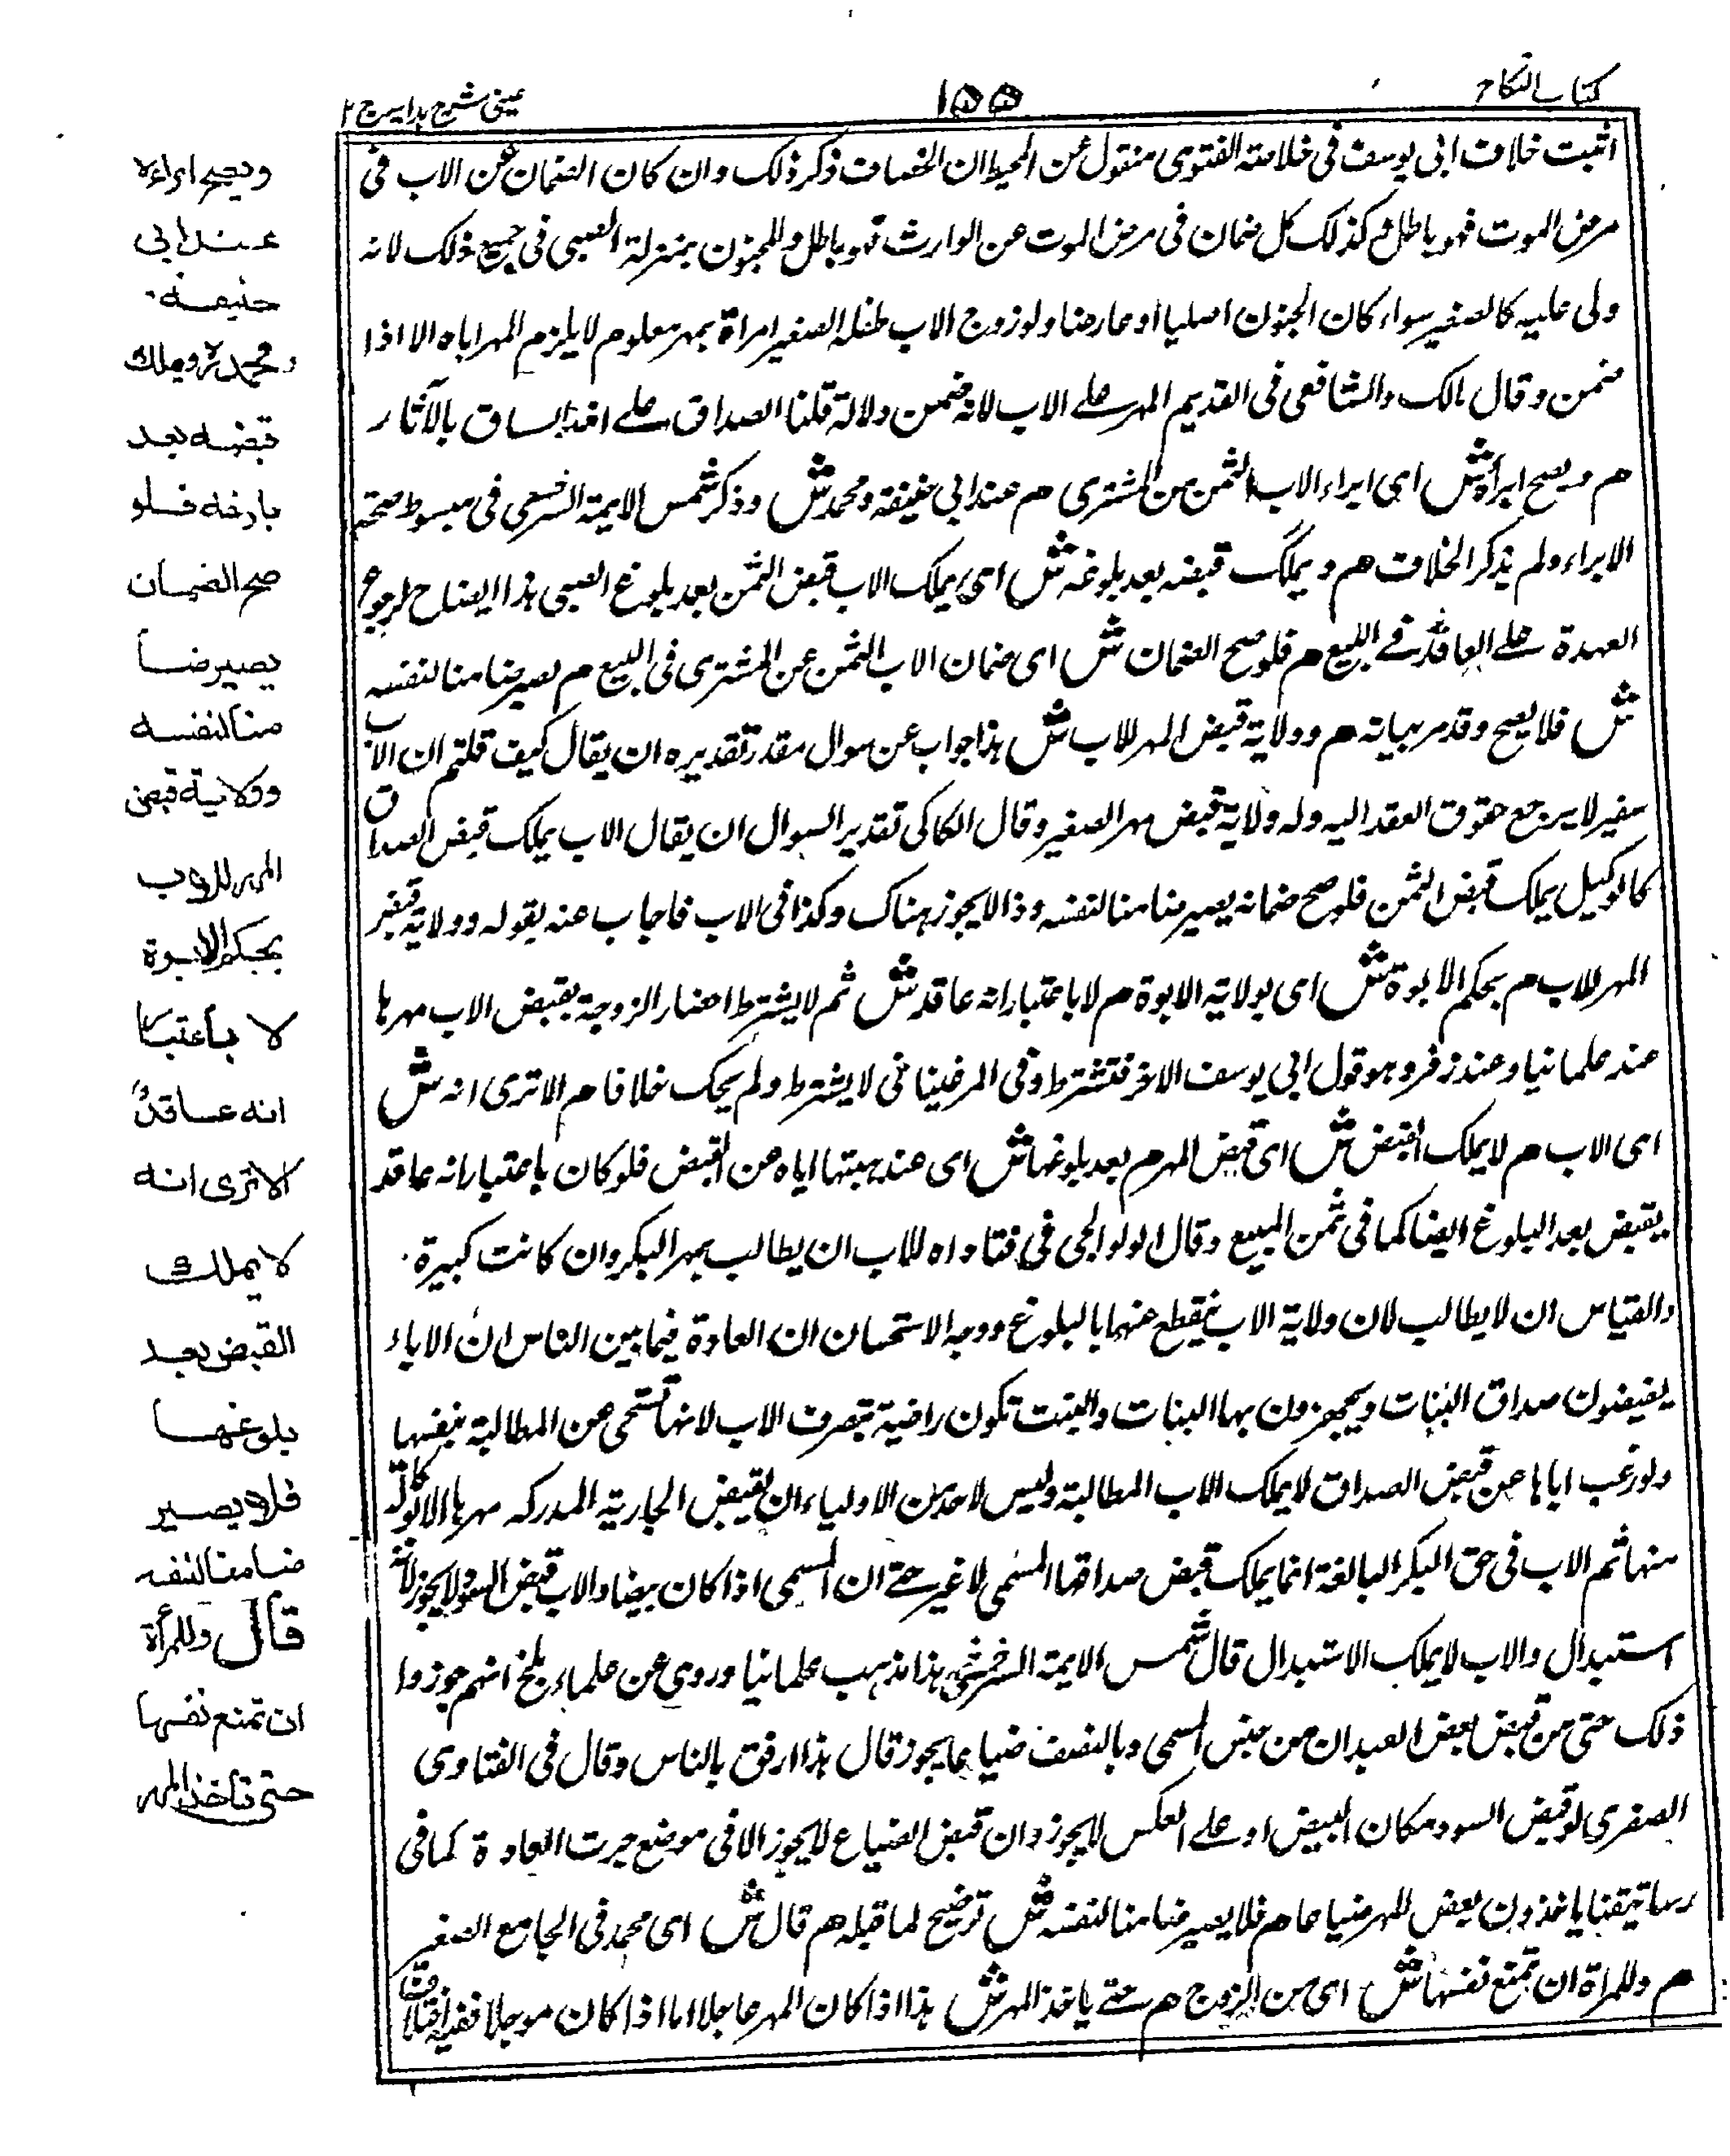 كتاب النكاح
١٥٥
عيني شرح هدايه ج ٢
اثبت خلاف ابى يوسف فى خلاصة الفتوى منقول عن المحيط ان الخصاف ذكر ذلك وان كان الضمان عن الاب فى
مرض الموت فهو باطل وكذلك كل ضمان فى مرض الموت عن الوارث فهو باطل والمجنون بمنزلة الصبى فى جميع ذلك لانه
ولى عليه كالصغير سواء كان الجنون اصليا او عارضا ولو زوج الاب طفله الصغير امراة بمهر معلوم لا يلزم المهر اباه الا اذا
ضمن وقال مالك والشافعى فى القديم المهر على الاب لانه ضمن دلالة قلنا الصداق على اخذ الساق بالآثار
م ويصح ابراؤه ش اى ابراء الاب الثمن من المشترى م عند ابى حنيفة ومحمد ش وذكر شمس الايمة السرخسى فى مبسوط صحة
الابراء ولم يذكر الخلاف م ويملك قبضه بعد بلوغه ش اى يملك الاب قبض الثمن بعد بلوغ الصبى هذا ايضاح لرجوع
العهدة على العاقد فى البيع م فلو صح الضمان ش اى ضمان الاب الثمن عن المشترى فى البيع م يصير ضامنا لنفسه
ش فلا يصح وقد مر بيانه م وولاية قبض المهر للاب ش هذا جواب عن سوال مقدر تقديره ان يقال كيف قلتم ان الاب
سفير لا يرجع حقوق العقد اليه وله ولاية قبض مهر الصغير وقال الكاكى تقدير السوال ان يقال الاب يملك قبض الصداق
كالوكيل يملك قبض الثمن فلو صح ضمانه يصير ضامنا لنفسه وذا لا يجوز هناك وكذا فى الاب فاجاب عنه بقوله وولاية قبض
المهر للاب م بحكم الابوة ش اى بولاية الابوة م لا باعتبار انه عاقد ش ثم لا يشترط احضار الزوجة بقبض الاب مهرها
عند علمائنا وعند زفر وهو قول ابى يوسف الاخر فتشترط وفى المرغينانى لا يشترط ولم يحك خلافا م الا ترى انه ش
اى الاب م لا يملك القبض ش اى قبض المهر م بعد بلوغها ش اى عند هبتها اياه عن القبض فلو كان باعتبار انه عاقد
يقبض بعد البلوغ ايضا كما فى ثمن المبيع وقال الولوالجى فى فتاواه للاب ان يطالب بمهر البكر وان كانت كبيرة
والقياس ان لا يطالب لان ولاية الاب ينقطع عنها بالبلوغ ووجه الاستحسان ان العادة فيما بين الناس ان الاباء
يقبضون صداق البنات ويجهزون بها البنات والبنت تكون راضية بتصرف الاب لانها تستحى عن المطالبة بنفسها
ولو اباها عن قبض الصداق لا يملك الاب المطالبة وليس لاحد من الاولياء ان يقبض الجارية المدركه مهرها الا وكالة
منها ثم الاب فى حق البكر البالغة انما يملك قبض صداقها المسمى لا غير حتى ان المسمى اذا كان بيضا والاب قبض السود لا يجوز لانه
استبدال والاب لا يملك الاستبدال قال شمس الايمة السرخسى هذا مذهب علمائنا وروى عن علماء بلخ انهم جوزوا
ذلك حتى من قبض بعض العبدان من جنس المسمى وبالنصف ضياعا يجوز قال هذا ارفق بالناس وقال فى الفتاوى
الصغرى لو قبض السود مكان البيض او على العكس لا يجوز وان قبض الضياع لا يجوز الا فى موضع جرت العادة كما فى
رساتيقنا ياخذون ببعض المهر ضياعا م فلا يصير ضامنا لنفسه ش توضيح لما قبله م قال ش اى محمد فى الجامع الصغير
م وللمراة ان تمنع نفسها ش اى من الزوج م حتى ياخذ المهر ش هذا اذا كان المهر عاجلا اما اذا كان موجلا ففيه
ويصح ابراءه
عند ابى
حنيفة
ومحمد ويملك
قبضه بعد
بلوغه فلو
صح الضمان
يصير ضا
منا لنفسه
وولاية قبض
المهر للاب
بحكم الابوة
لا باعتبار
انه عاقد
الا ترى انه
لا يملك
القبض بعد
بلوغها
فلا يصير
ضامنا لنفسه
قال وللمرأة
ان تمنع نفسها
حتى تاخذ المهر